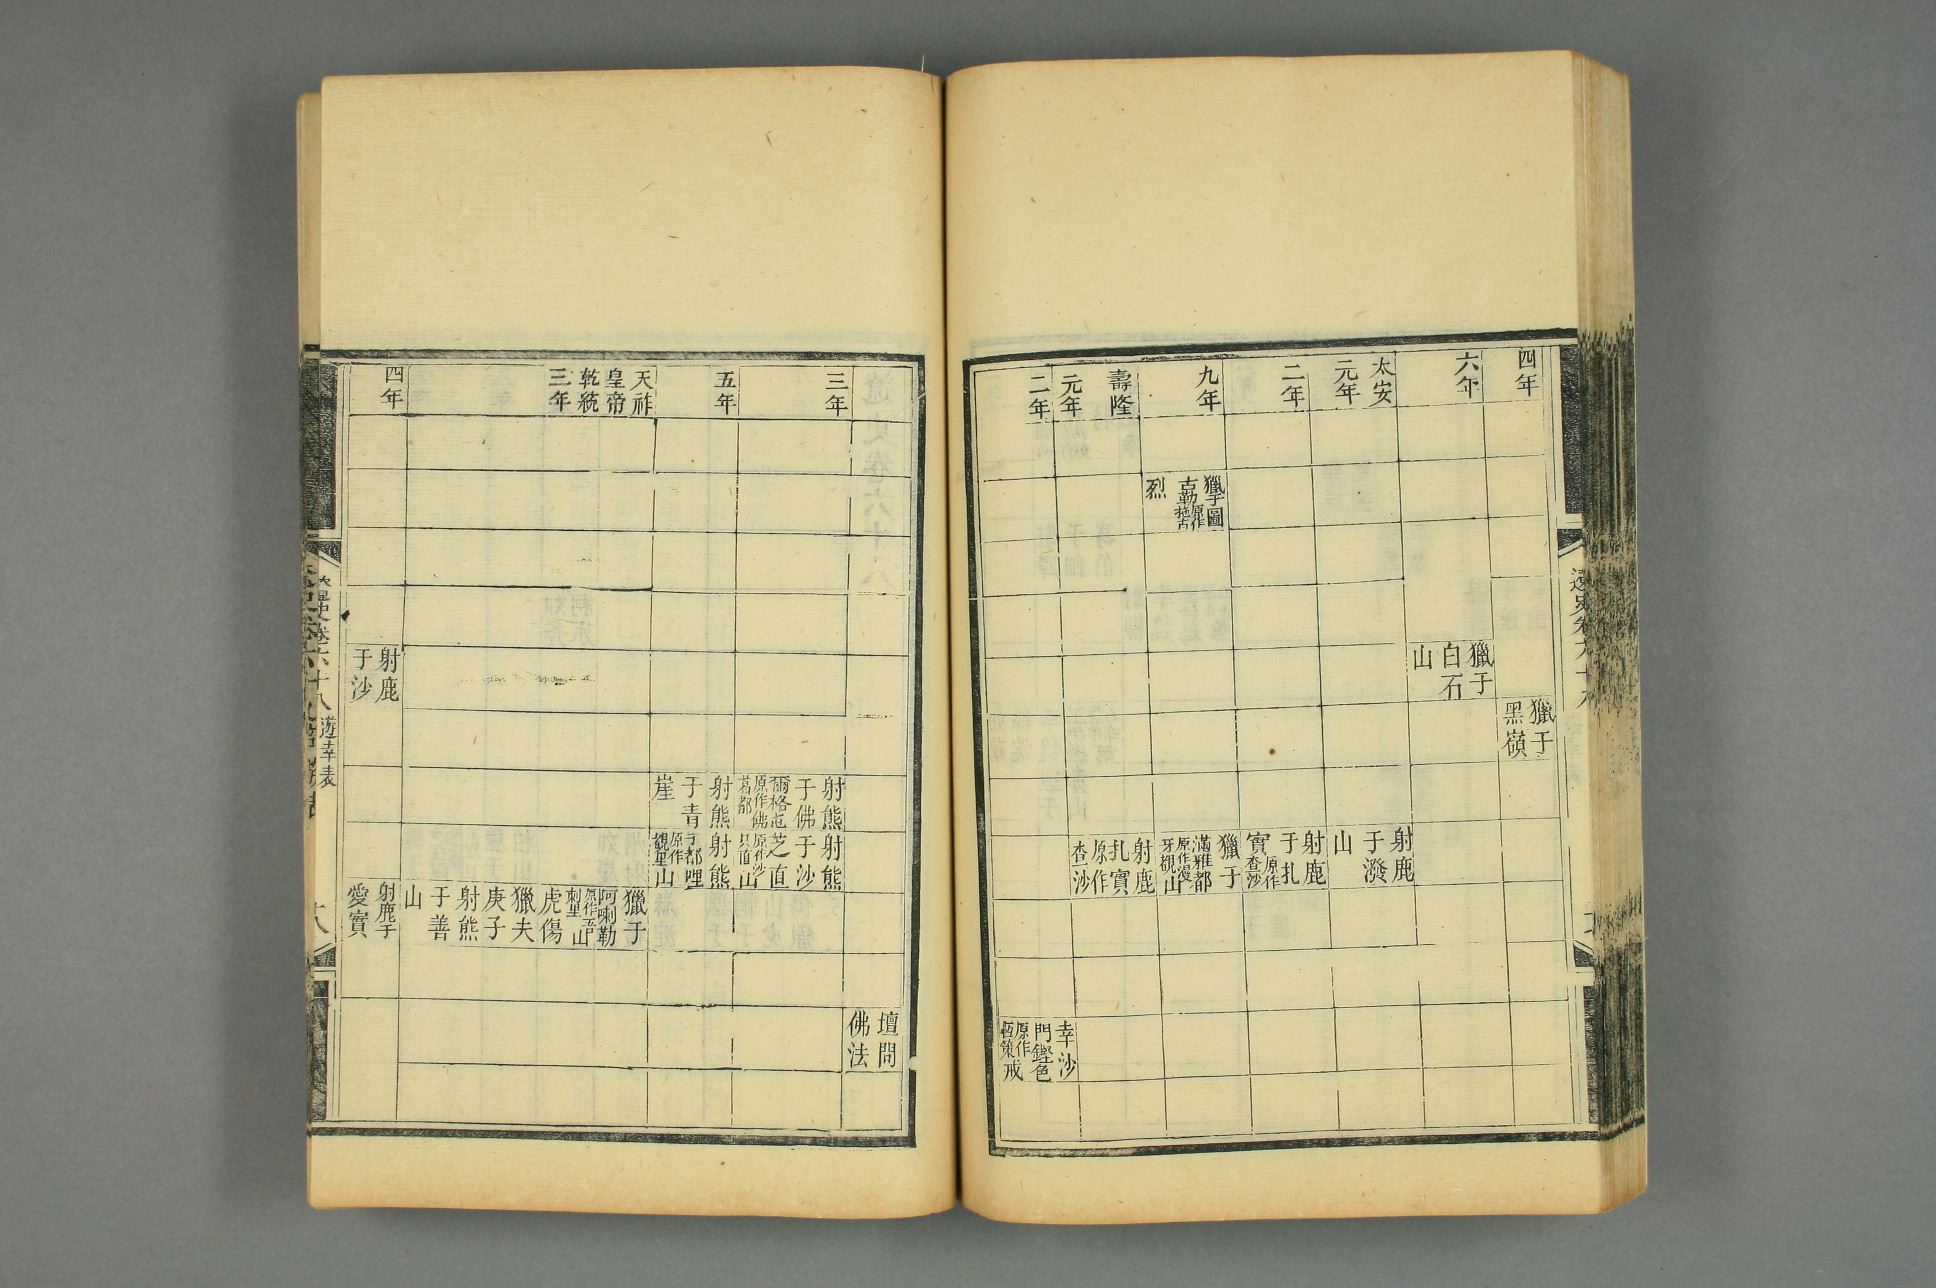 四年
獵于
黑嶺
六年
獵于
白石
山
太安
元年
射鹿
于潑
山
二年
射鹿
于扎
實原作查沙
九年
獵于圖
古勒原作拖古
烈
獵于
滿雅都
原作漫
牙覩山
壽隆
元年
射鹿
扎實
原作
查沙
二年
幸沙
門鏗色
原作
恆策戒
壇問
佛法
三年
射熊
于佛
爾格屯
原作佛
葛都
射熊
于沙
芝直
原作沙
只直山
五年
射熊
于青
崖
射熊
于都哩
原作
觀里山
天祚
皇帝
乾統
三年
獵于
阿喇勒
原作吾
剌里山
虎傷
獵夫
庚子
射熊
于善
山
四年
射鹿
于沙
射鹿于
愛實
遼史卷六十八 遊幸表
十八